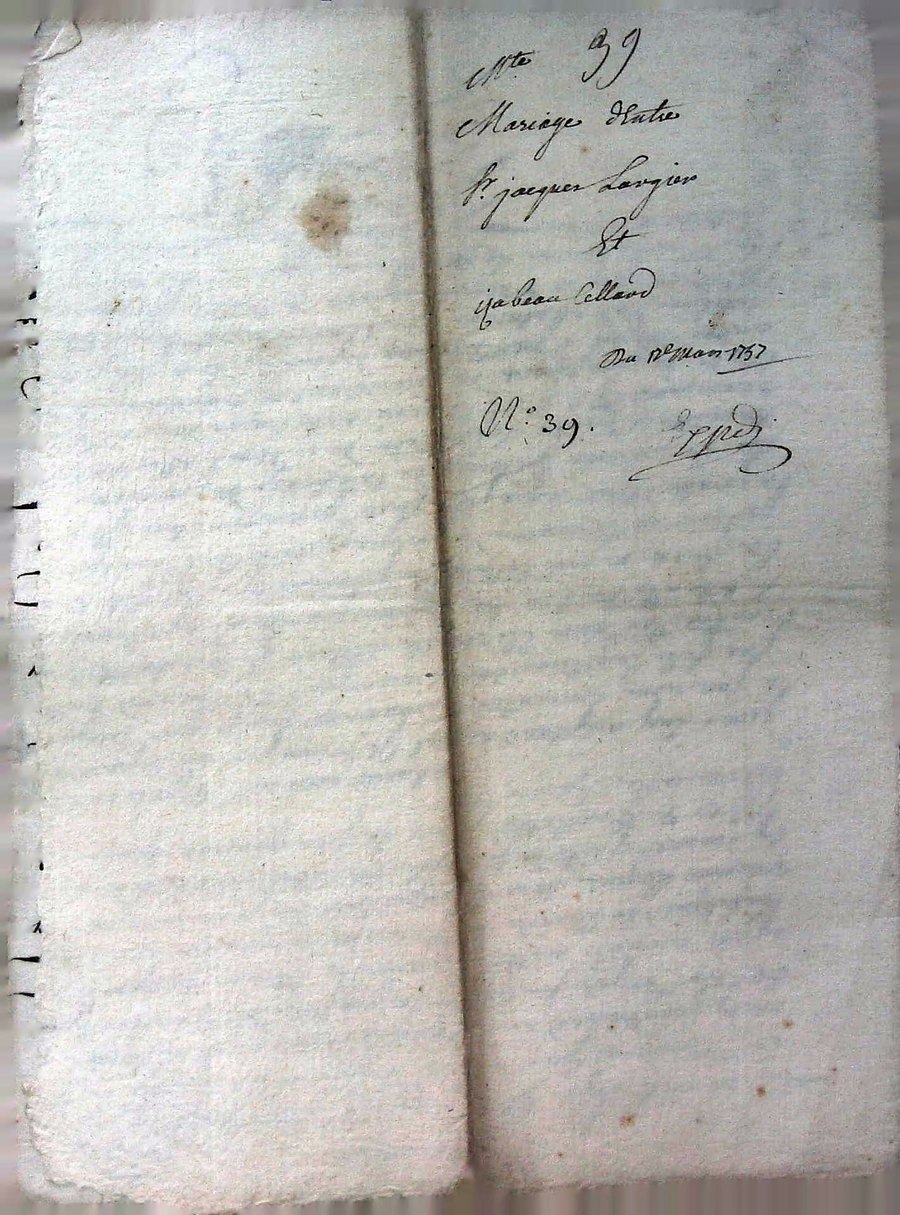 Mte 39
Mariage d'Entre
Sr jacques Laugier
Et
isabeau Cellard
Du 12e Mars 1757
N.° 39.
Exped.